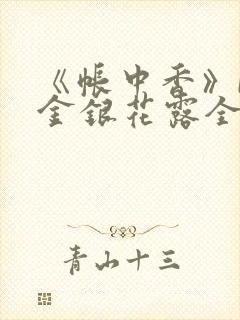 《帐中香》
金银花露全
青山十三